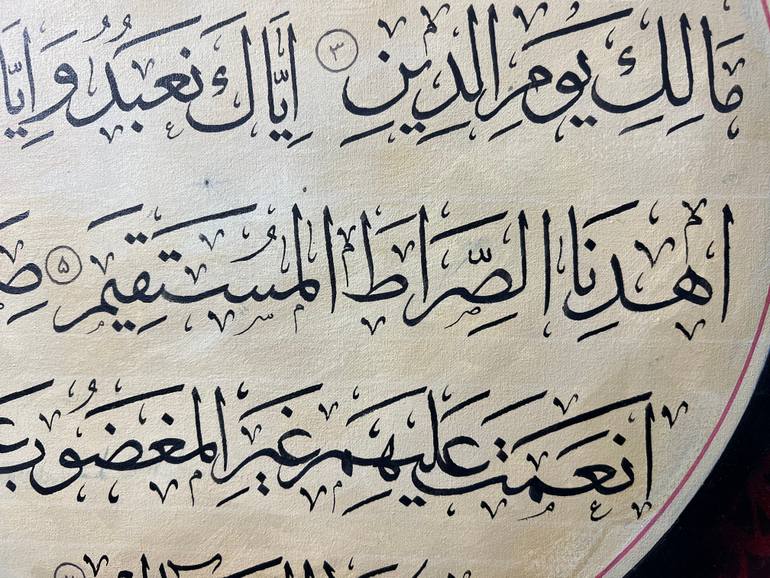 مَالِكِ يَوْمِ الدِّينِ ٣ اِيَّاكَ نَعْبُدُ وَاِيَّا
اهْدِنَا الصِّرَاطَ الْمُسْتَقِيمَ ۵ صِ
اَنْعَمْتَ عَلَيْهِمْ غَيْرِ الْمَغْضُوبِ عَ